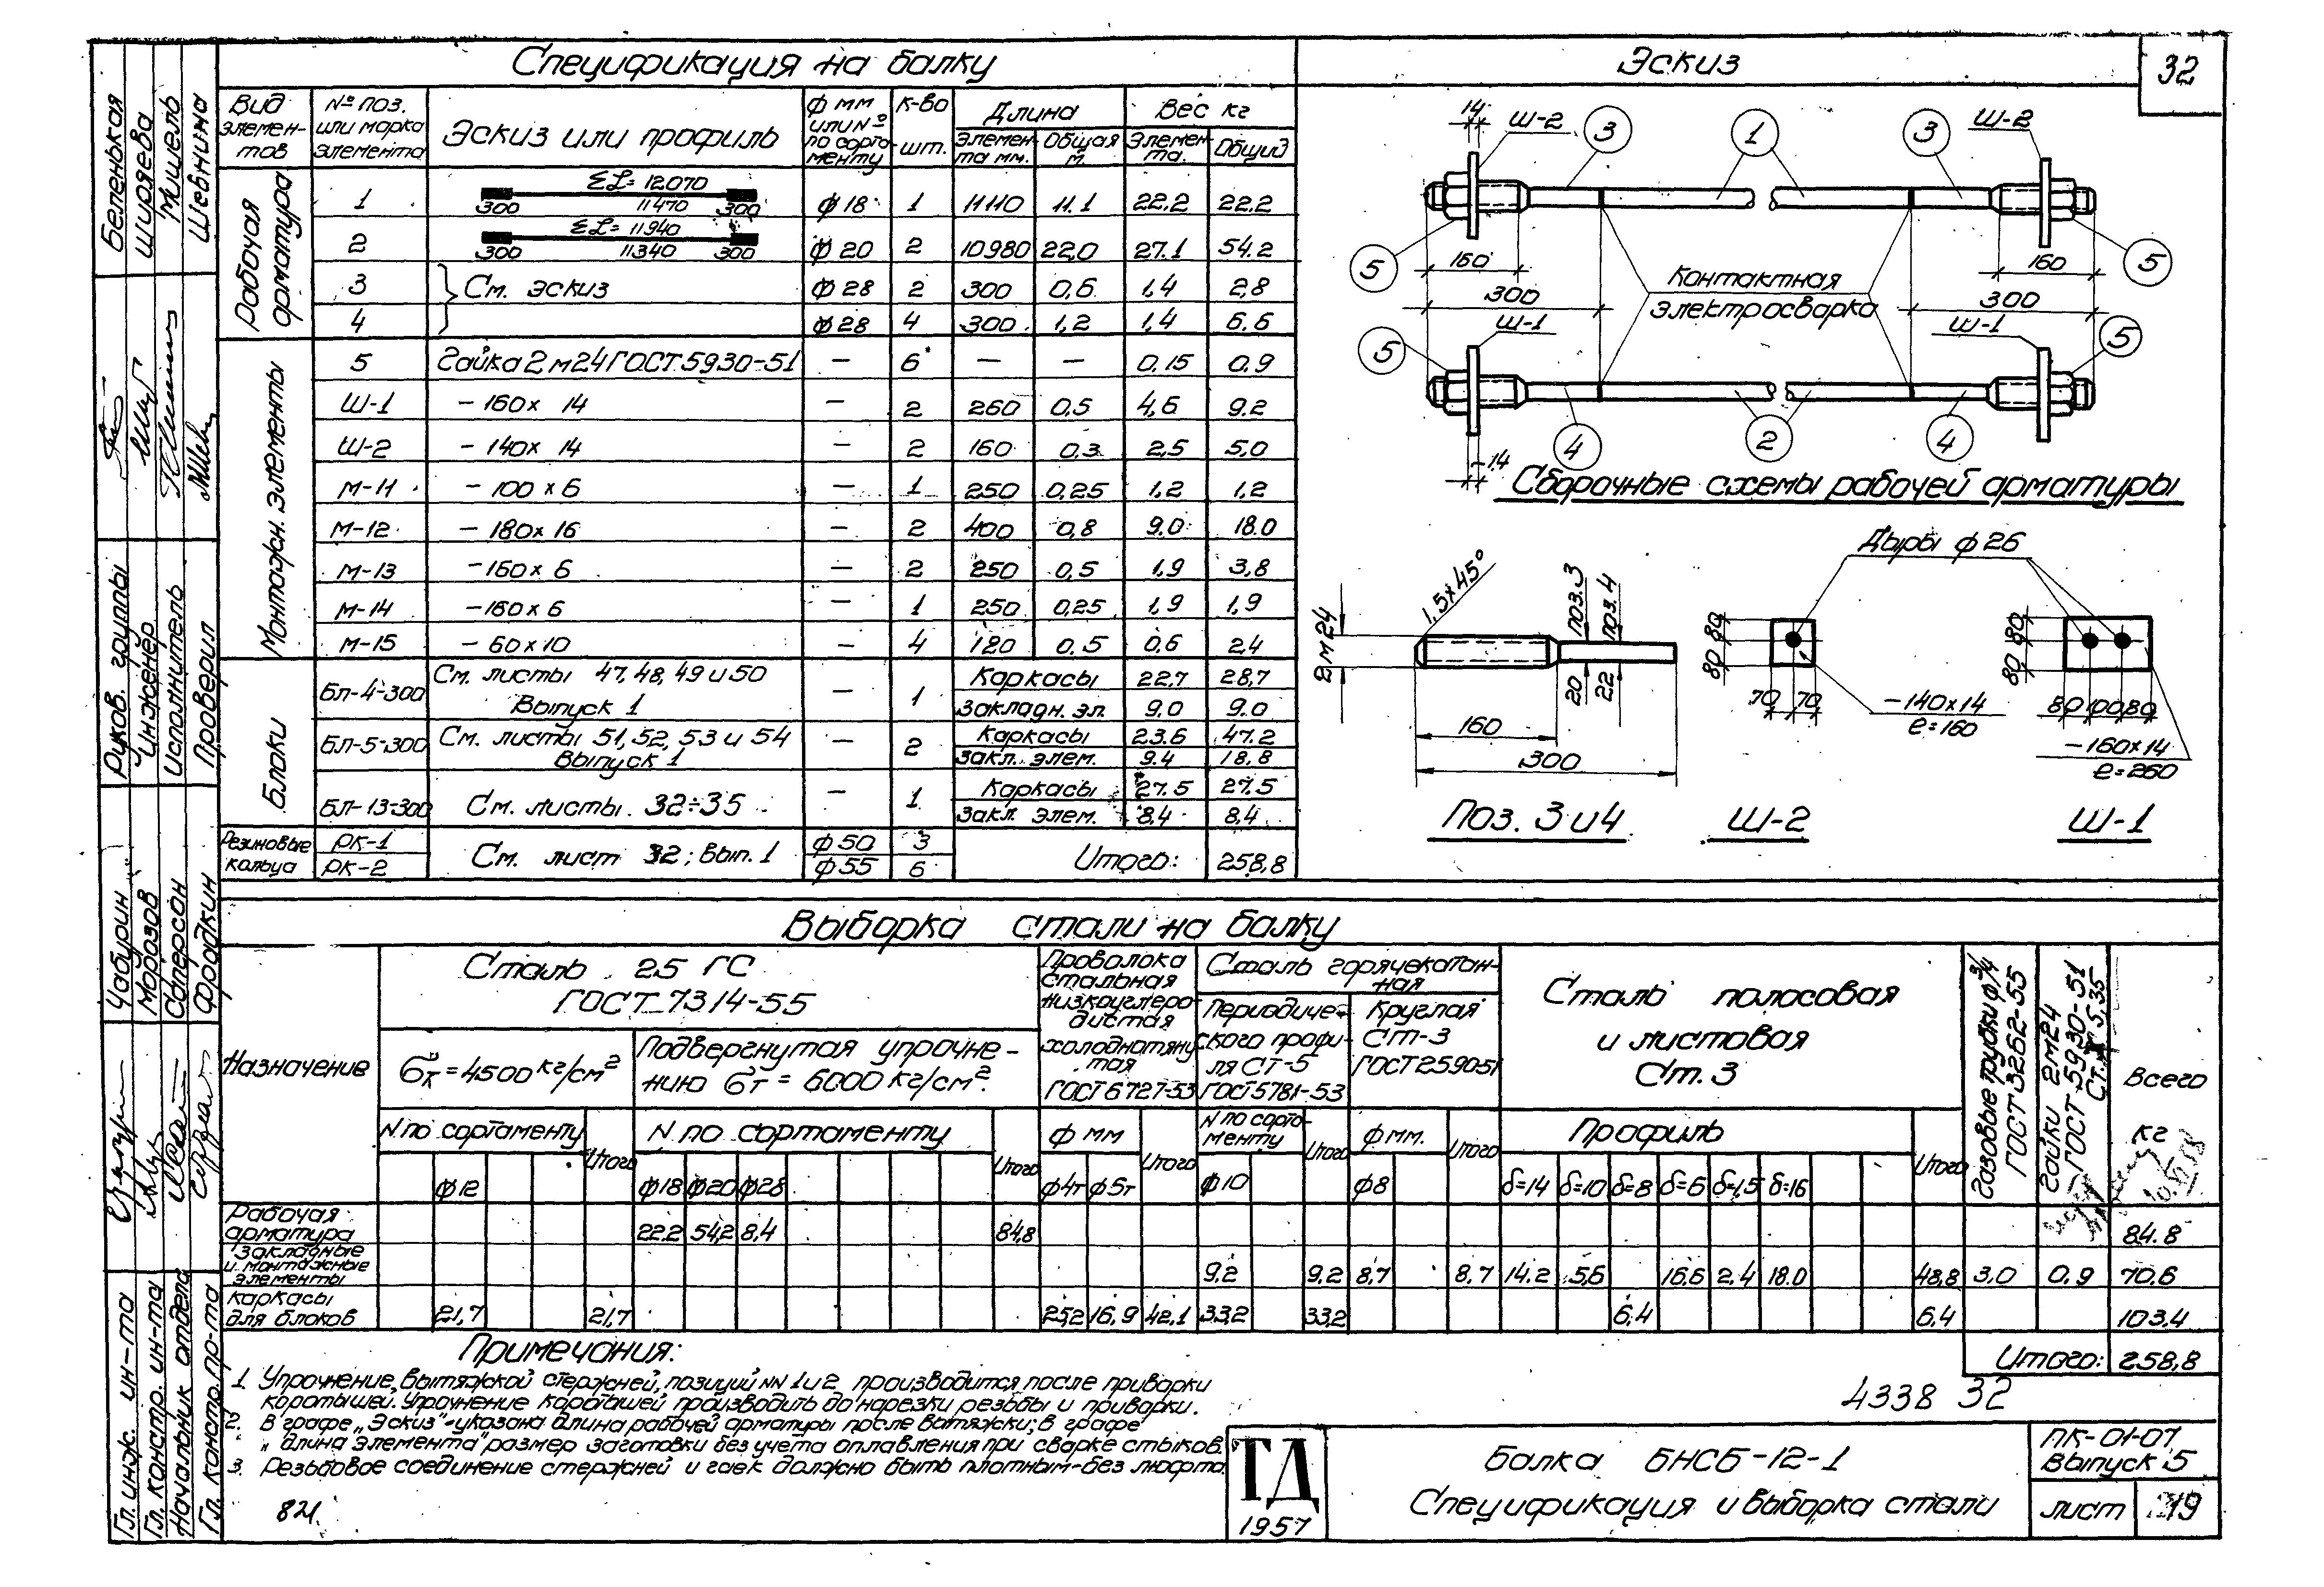 Спецификация на балку
Эскиз
32
Вид элемен-тов
№ поз. или марка элемента
Эскиз или профиль
ф мм или № по сорта-менту
К-во шт.
Длина
Элемен-та мм.
Общая м.
Вес кг
Элемен-та.
Общий
Рабочая арматура
1 ΣL=12070 300 11470 300 ф 18 1 11110 11.1 22.2 22.2
2 ΣL=11940 300 11340 300 ф 20 2 10980 22,0 27.1 54.2
3 См. эскиз ф 28 2 300 0,6 1,4 2,8
4 ф 28 4 300 1,2 1,4 6.6
Монтажн. элементы
5 Гайка 2м24 ГОСТ 5930-51 — 6 — — 0,15 0,9
Ш-1 - 160х 14 — 2 260 0,5 4,6 9.2
Ш-2 - 140х 14 — 2 160 0,3 2,5 5,0
М-11 - 100 х 6 — 1 250 0,25 1,2 1,2
М-12 - 180х 16 — 2 400 0,8 9.0 18.0
М-13 - 160 х 6 — 2 250 0,5 1,9 3,8
М-14 - 160 х 6 — 1 250 0,25 1,9 1,9
М-15 - 60 х 10 — 4 120 0,5 0,6 2,4
Блоки
Бл-4-300 См. листы 47, 48, 49 и 50 Выпуск 1 — 1
Каркасы 22.7 28,7
Закладн. эл. 9.0 9.0
Бл-5-300 См. листы 51, 52, 53 и 54 Выпуск 1 — 2
Каркасы 23.6 47.2
Закл. элем. 9.4 18.8
Бл-13-300 См. листы 32÷35 — 1
Каркасы 27.5 27.5
Закл. элем. 8,4 8,4
Резиновые кольца
РК-1 ф 50 3
РК-2 ф 55 6
См. лист 32; вып. 1
Итого: 258,8
14 Ш-2 3 1 3 Ш-2
5 160 160 5
300 Контактная электросварка 300
5 Ш-1 Ш-1 5
4 2 4
14
Сборочные схемы рабочей арматуры
Дыры ф 26
1,5х45°
2м24
поз. 3
поз. 4
20
22
160
300
80 80
70 70
-140х14
е=160
80 80
80 100 80
-160х14
е=260
Поз. 3 и 4
Ш-2
Ш-1
Выборка стали на балку
Назначение
Сталь 25 ГС
ГОСТ 7314-55
бк = 4500 кг/см²
Подвергнутая упрочне-
нию бт = 6000 кг/см²
Проволока стальная низкоуглеро-дистая холоднотяну-тая ГОСТ 6727-53
Сталь горячекатан-ная
Периодиче-ского профи-ля СТ-5 ГОСТ 5781-53
Круглая Ст-3 ГОСТ 2590-51
Сталь полосовая
и листовая
Ст. 3
Газовые трубки ф 3/4 ГОСТ 3262-55
Гайки 2м24 ГОСТ 5930-51
Всего кг
N по сортаменту Итого
N по сортаменту Итого
ф мм Итого
N по сорта-менту Итого
ф мм. Итого
Профиль Итого
ф12 ф18 ф20 ф28 ф4т ф5т ф10 ф8 δ=14 δ=10 δ=8 δ=6 δ=1,5 δ=16
Рабочая арматура 22.2 54,2 8,4 84,8 84.8
Закладные и монтажные элементы 9,2 9,2 8,7 8,7 14.2 5,6 16.6 2,4 18.0 48,8 3.0 0,9 70.6
Каркасы для блоков 21,7 21,7 25,2 16,9 42,1 33,2 33,2 6.4 6,4 103,4
Итого: 258,8
4338 32
Примечания:
1. Упрочнение, вытяжкой стержней, позиций NN 1 и 2 производится после приварки
коротышей. Упрочнение коротышей производить до нарезки резьбы и приварки.
2. В графе „Эскиз"-указана длина рабочей арматуры после вытяжки; в графе
„Длина элемента" размер заготовки без учета оплавления при сварке стыков.
3. Резьбовое соединение стержней и гаек должно быть плотным-без люфта.
821
ТД
1957
Балка БНСБ-12-1
Спецификация и выборка стали
ПК-01-07
Выпуск 5
лист 19
Беленькая
Ширяева
Мишель
Шевнина
Руков. группы
Инженер
Исполнитель
Проверил
Чабурин
Морозов
Саперсон
Фрадкин
Гл. инж. ин-та
Гл. констр. ин-та
Начальник отдела
Гл. констр. пр-та